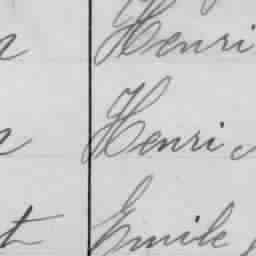 Henri
Henri
t Emile